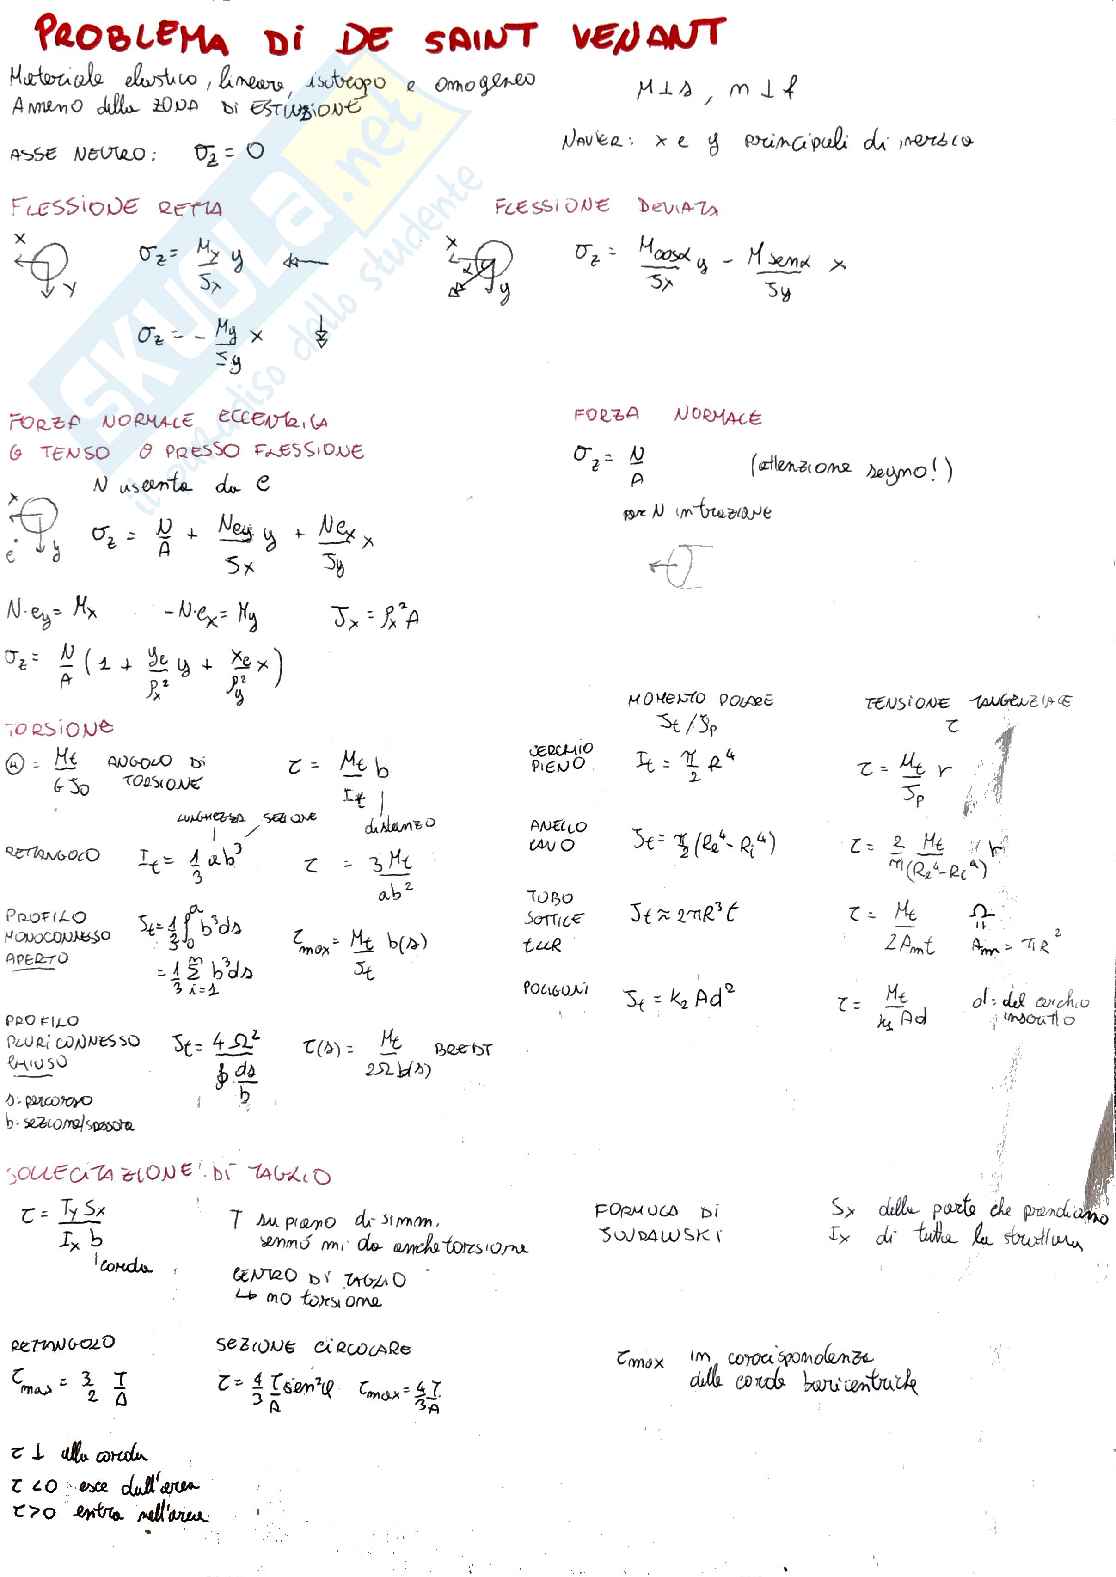 PROBLEMA DI DE SAINT VENANT
Materiale elastico, lineare, isotropo e omogeneo
A meno della ZONA DI ESTINZIONE
M⊥s, n⊥f
ASSE NEUTRO: σz = 0
NAVIER: x e y principali di inerzia
FLESSIONE RETTA
x
y
σz = Mx/Jx y
σz = - My/Jy x
FLESSIONE DEVIATA
x
α
y
σz = Mcosα/Jx y - Msenα/Jy x
FORZA NORMALE ECCENTRICA
O TENSO O PRESSO FLESSIONE
N uscente da C
x
e
y
σz = N/A + Ney/Jx y + Nex/Jy x
N·ey = Mx -N·ex = My Jx = ρx²A
σz = N/A (1 + ye/ρx² y + xe/ρy² x)
FORZA NORMALE
σz = N/A (attenzione segno!)
per N in trazione
TORSIONE
Θ = Mt/GJo ANGOLO DI TORSIONE
τ = Mt/It b
distanza
LUNGHEZZA SEZIONE
RETTANGOLO It = 1/3 ab³ τ = 3Mt/ab²
PROFILO MONOCONNESSO APERTO
Jt = 1/3 ∫₀ᵃ b³ds
= 1/3 Σ i=1 n b³ds
τmax = Mt/Jt b(s)
PROFILO PLURICONNESSO CHIUSO
Jt = 4Ω²/∮ds/b τ(s) = Mt/2Ωb(s) BREDT
s: percorso
b: sezione/spessore
MOMENTO POLARE
Jt/Jp
TENSIONE TANGENZIALE
τ
CERCHIO PIENO It = π/2 R⁴ τ = Mt/Jp r
ANELLO CAVO Jt = π/2 (Re⁴ - Ri⁴) τ = 2/π Mt/(Re⁴ - Ri⁴) r
TUBO SOTTILE t≪R Jt ≈ 2πR³t τ = Mt/2Amt Ω = Am = πR²
POLIGONI Jt = k2 Ad² τ = Mt/k1 Ad d: del cerchio inscritto
SOLLECITAZIONE DI TAGLIO
τ = Ty Sx/Ix b
corda
T su piano di simm.
sennò mi da anche torsione
CENTRO DI TAGLIO
↳ no torsione
FORMULA DI JOURAWSKI
Sx della parte che prendiamo
Ix di tutta la struttura
RETTANGOLO
τmax = 3/2 T/A
SEZIONE CIRCOLARE
τ = 4/3 T/A sen²φ τmax = 4/3 T/A
τmax in corrispondenza
delle corde baricentriche
τ ⊥ alla corda
τ<0 esce dall'area
τ>0 entra nell'area
SKUOLA.net
il paradiso dello studente